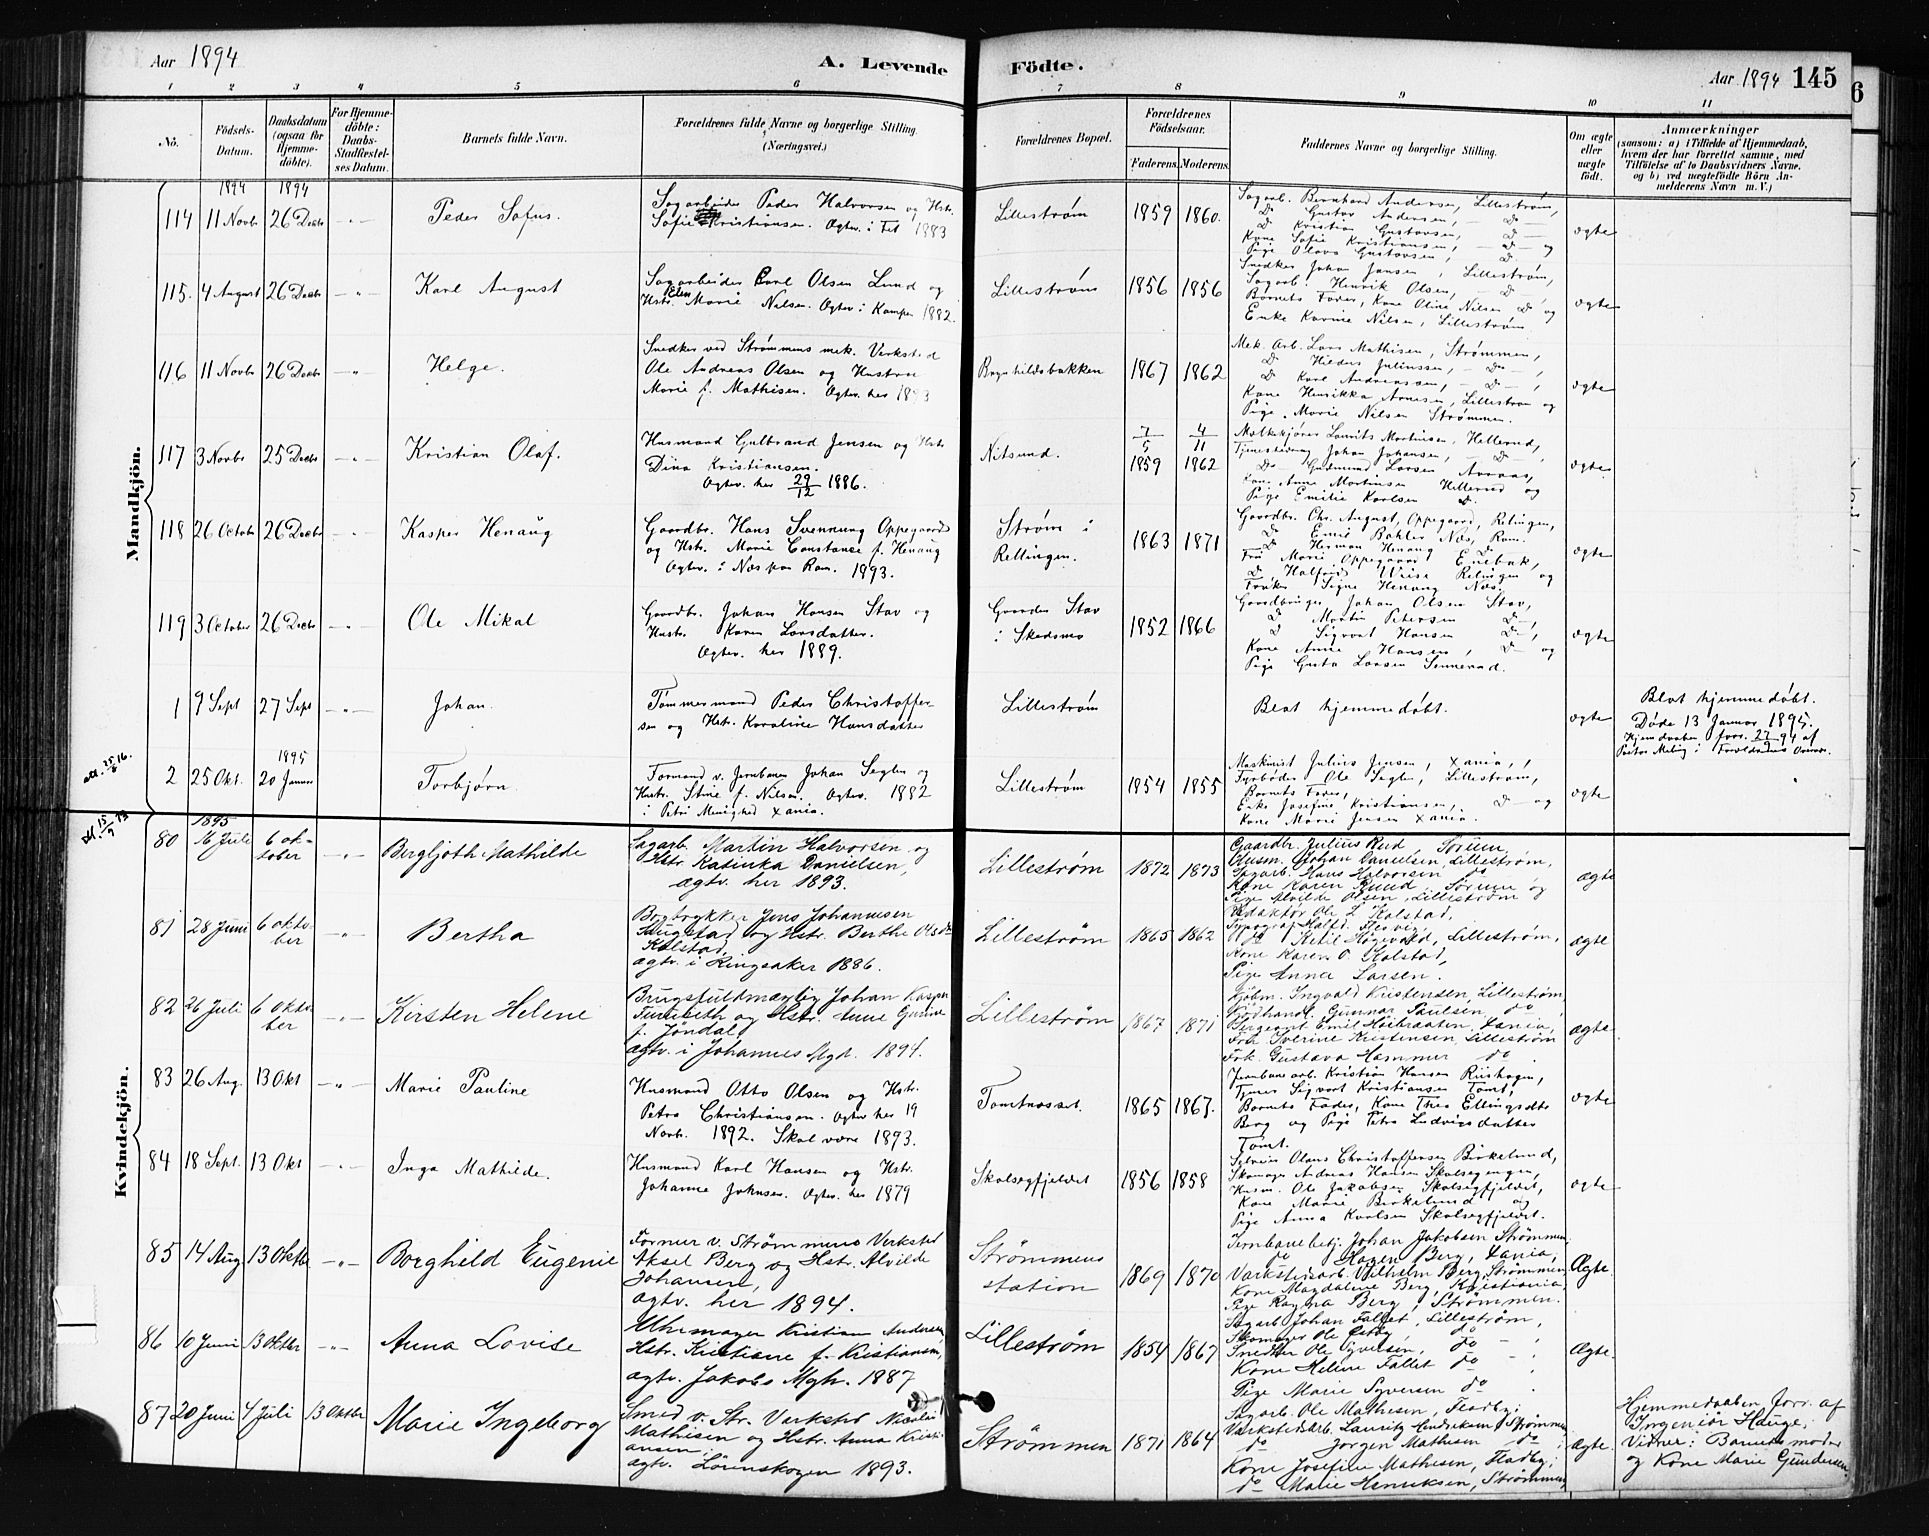 Aar 1894
A. Levende
Födte.
Aar 1894 145
6
1 2 3 4 5 6 7 8 9 10 11
No.
Födsels-
Datum.
Daabsdatum
(ogsaa for
Hjemme-
döbte).
For Hjemme-
döbte:
Daabs-
Stadfæstel-
ses Datum.
Barnets fulde Navn.
Forældrenes fulde Navne og borgerlige Stilling.
(Næringsvei.)
Forældrenes Bopæl.
Forældrenes
Födselsaar.
Faderens. Moderens.
Faddernes Navne og borgerlige Stilling.
Om ægte
eller
uægte
födt.
Anmærkninger
(saasom: a) i Tilfælde af Hjemmedaab,
hvem der har forrettet samme, med
Tilföielse af to Daabsvidners Navne.
og b) ved uægtefödte Börn An-
melderens Navn m. V.)
Mandkjön.
1894 1894
114 11 Novbr 26 Decbr
Peder Sofus.
Sagarbeider Peder Halvorsen og Hstr.
Sofie Kristiansen. Ægtev. i Fet 1883
Lilleström
1859 1860.
Sagarb. Bernhard Andersen, Lilleström,
Do Gustav Andersen, Do
Do Kristian Gustavsen, Do
Kone Sofie Kristiansen, Do og
Pige Olava Gustavsen, Do
ægte
115. 4 August 26 Decbr
Karl August
Sagarbeider Carl Olsen Lund og
Hstr. Marie Nilsen. Ægtev. i Kampen 1882.
Lilleström
1856 1856
Snedker Johan Jensen, Lilleström,
Sagarb. Henrik Olsen, Do
Barnets Fader, Kone Oline Nilsen Do og
Enke Karine Nilsen, Lilleström
ægte
116 11 Novbr 26 Decbr
Helge.
Snedker ved Strömmens mek. Verksted
Ole Andreas Olsen og Hustru
Marie f. Mathisen. Ægtev. her 1893
Bognhildsbakken
1867 1862
Mek. Arb. Lars Mathisen, Strömmen,
Do Hilder Juliussen, Do
Do Karl Andreassen, Do
Kone Henrikka Arnesen, Lilleström og
Pige Marie Nilsen Strömmen.
ægte
117 3 Novbr 25 Decbr
Kristian Olaf.
Husmand Gulbrand Jensen og Hstr
Dina Kristiansen.
Ægtev. her 29/12 1886.
Nitsund.
7/5 1859 4/11 1862
Melkekjører Laurits Martinsen, Hellerud,
Tjenestedreng Johan Johansen, Do
Do Gudmund Larsen Aamaas,
Kone Anne Martinsen Hellerud og
Pige Emilie Karlsen Do
ægte
118 26 October 26 Decbr
Kasper Henaug
Gaardbr. Hans Svennung Oppegaard
og Hstr. Marie Constance f. Henaug
Ægtev. i Næs paa Rom. 1893.
Ström i
Rellingen.
1863 1871
Gaardbr. Chr. August, Oppegaard, Relingen,
Do Emil Bahler Næs, Rom.
Do Herman Henaug Do
Fru Marie Oppegaard Enebak,
Do Halfrid Wrise Relingen og
Frøken Signe Henaug Næs.
ægte
119 3 October 26 Decbr
Ole Mikal
Gaardbr. Johan Hansen Stav og
Hustr. Karen Larsdatter.
Ægtev. her 1889.
Gaarden Stav
i Skedsmo
1852 1866
Gaardbruger Johan Olsen Stav,
Do Martin Petersen Do,
Do Sigvart Hansen Do,
Kone Anne Hansen, Do og
Pige Gusta Larsen Sennerud.
ægte
1 9 Sept 27 Sept
Johan.
Tømmermand Peder Christoffer-
sen og Hstr. Karoline Hansdatter
Lilleström
Blot hjemmedøbt.
ægte
Blot hjemmedøbt.
Døde 13 Januar 1895.
Hjemdaaben forr. 27/9 94 af
att. 25/6 16.
1895
2 25 Okt. 20 Januar
Torbjørn.
Formand v. Jernbanen Johan Seglen og
Hustr. Stine f. Nilsen. Ægtev. 1882
i Petri Menighed Xania.
Lilleström
1854 1855
Maskinist Julius Jensen, Xania,
Fyrbøder Ole Seglen, Lilleström,
Barnets Fader,
Enke Josefine Kristiansen, Do og
Kone Marie Jensen Xania.
ægte
Kvindekjön.
1895
80 16 Juli 6 ok-
tober
Bergljoth Mathilde
Sagarb. Martin Halvorsen og
Hstr Katinka Danielsen,
ægtv. her 1893.
Lilleström
1872 1873
Gaardbr. Julius Ruud, Sørum,
Husm. Johan Danielsen, Lilleström,
Sagarb. Hans Halvorsen do
Kone Karen Ruud, Sørum og
Pige Alvilde Olsen, Lilleström
ægte
81 28 Juni 6 okto-
ber
Bertha
Bogtrykker Jens Johannesen
Haugstad og Hstr. Berthe Olsdtr
Kolstad,
ægtv. i Ringsaker 1886.
Lilleström
1865 1862
Redaktør Ole L Kolstad,
Do Ketil Høgevold, Lilleström,
Kone Karen O. Kolstad,
Pige Anna Larsen.
ægte
82 26 Juli 6 Okto-
ber
Kirsten Helene
Brugsfuldmægtig Johan Kasper
Funrieth og Hstr. Anne Gurine
f. Jöndal,
ægtv. i Johannes Mgh. 1894.
Lilleström
1867 1871
Kjøbm. Ingvald Kristensen, Lilleström,
Kjødhandl. Gunnar Paulsen do,
Sergeant Emil Høibraaten, Xania,
Frk. Iverine Kristensen, Lilleström
Frk. Gustava Hammer do
ægte
83 26 Aug. 13 Okt
Marie Pauline
Husmand Otto Olsen og Hstr.
Petra Christiansen. Ægtev her 19
Novbr. 1892. Skal være 1893.
Tomtnæsset.
1865 1867.
Jernbanearb. Kristian Hansen Riishagen,
Tjener Sigvart Kristiansen Tomt,
Barnets Fader, Kone Thea Ellingsdtr
Berg og Pige Petra Ludvigsdatter
Tomt.
ægte
84 18 Sept. 13 Okt
Inga Mathilde.
Husmand Karl Hansen og Hstr.
Johanne Johnsen. Ægtev. her 1879
Skolsegfjeldet
1856 1858
Sylvius Olaus Christoffersen Birkelund,
Skomager Andreas Hansen Skolsegengen,
Husm. Ole Jakobsen Skolsegfjeldet,
Kone Marie Birkelund og
Pige Anna Karlsen Skolsegfjeldet.
ægte
85 14 Aug 13 Oktbr
Borghild Eugenie
Former v. Strømmens Verksted
Aksel Berg og Hstr. Alvilde
Johansen,
ægtv. her 1894.
Strömmens
station
1869 1870
Jernbanebetj. Johan Jakobsen Strömmen
do Hagen Berg, Xania,
Værkstedsarb. Vilhelm Berg, Strömmen,
Kone Magdaline Berg, Kristiania,
Pige Ragna Berg, Strömmen.
Ægte
86 10 Juni 13 Oktbr
Anna Lovise
Uhrmager Kristian Andersen
Hstr. Kristiane f. Kristiansen,
ægtv. Jakobs Mgh. 1887
Lilleström
1854 1867
Sagarb Johan Fallet, Lilleström,
Skomager Ole Østby, do
Snedker Ole Syversen, do
Kone Helene Fallet do
Pige Marie Syversen do
Ægte.
87 20 Juni 4 Juli 13 Oktbr
Marie Ingeborg
Smed v. Str. Verksted Nicolai
Mathisen og Hstr. Anna Kristi-
ansen,
ægtv. Lørenskogen 1893.
Strömmen
1871 1864
Sagarb. Ole Mathesen, Fladby;
Værkstedsarb. Lauritz Hendriksen, Strömmen
do Jørgen Mathesen do
Kone Josefine Mathesen, Fladby;
do Marie Henriksen, Strömmen,
Ægte.
Hjemmedaaben forr. af
Ingeniør Hauge;
Vidner: Barnets moder
og Kone Marie Gundersen.